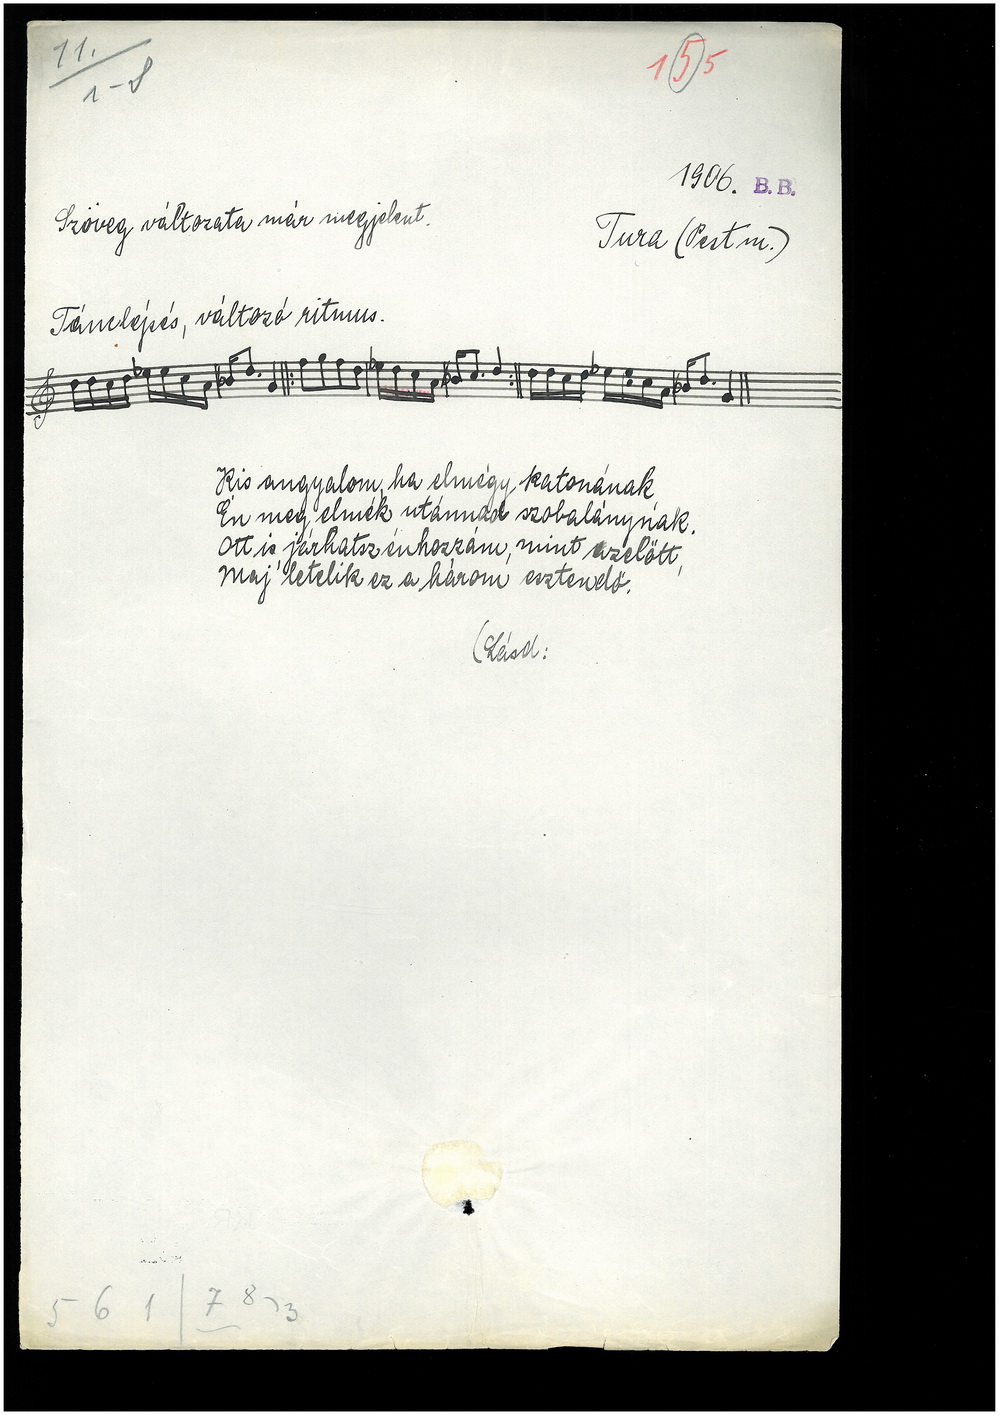 11.
1-8
1 5 5
1906. B. B.
Szöveg változata már megjelent.
Tura (Pest m.)
Tánclépés, változó ritmus.
Kis angyalom, ha elmégy katonának
Én meg elmék utánnad szobalánynak.
Ott is járhatsz énhozzám, mint azelőtt,
Maj' letelik ez a három esztendő.
(Lásd:
5 6 1 | 7 8